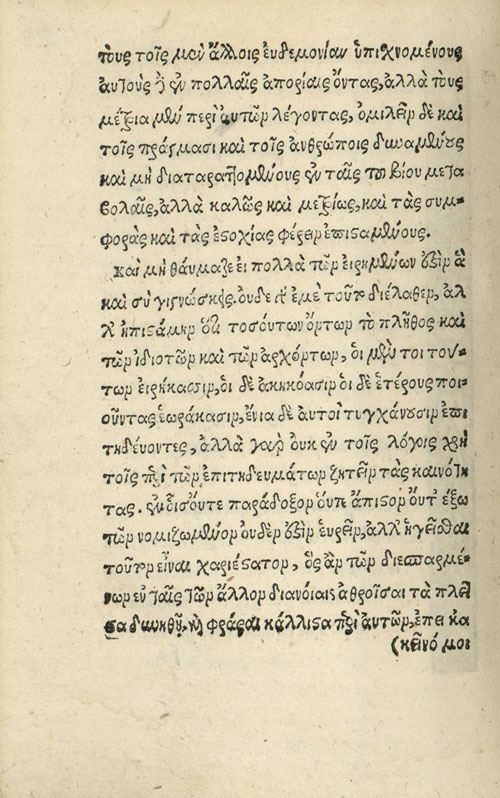 τους τοῖς μὲν ἄλλοις ἐυδεμονίαν ὑπιχνομένους
αυτοὺς δ' ἐν πολλαῖς απορίαις ὄντας, αλλὰ τους
μέτρια μὲν περὶ αυτῶν λέγοντας, ὁμιλεῖν δὲ και
τοῖς πράγμασι και τοῖς ἀνθρώποις δυναμένους
και μὴ διαταραττομένους ἐν ταῖς του βίου μετα
βολαῖς, αλλὰ καλῶς και μετρίως, και τὰς συμ-
φορὰς και τὰς ἐστοχίας φέρειν ἐπισταμένους.
Και μὴ θάυμαζε ει πολλὰ τῶν ειρημένων ἐστὶν ἃ
και σὺ γιγνώσκης. ουδε γὰρ ἐμὲ τοῦτο διέλαθεν, αλ
λ' ἠπιστάμην ὅτι τοσούτων ὄντων τὸ πλῆθος και
τῶν ιδιοτῶν και τῶν αρχόντων, ὁι μὲν τοι του-
των ειρήκασιν, ὁι δὲ ἀκηκόασιν ὁι δὲ ἑτέρους ποι-
οῦντας ἑωράκασιν, ἔνια δὲ αυτοὶ τυγχάνουσιν ἐπι
τηδέυοντες, αλλὰ γὰρ ουκ ἐν τοῖς λόγοις χρὴ
τοῖς περὶ τῶν ἐπιτηδευμάτων ζητεῖν τὰς καινότη
τας. ἐν οἷς ούτε παράδοξον ούτε ἄπιστον ούτ' ἔξω
τῶν νομιζωμένον ουδὲν ἐστὶν ἑυρεῖν, αλλ' ἡγεῖσθαι
τοῦτον εἶναι χαριέστατον, ὃς ἂν τῶν διεσπαρμέ-
νων εν ταῖς τῶν ἄλλον διανόιαις ἀθροῖσαι τὰ πλεῖ
στα δυνηθῇ, και φράσαι κάλλιστα περὶ αυτῶν, ἐπει κα
(κεῖνό μοι